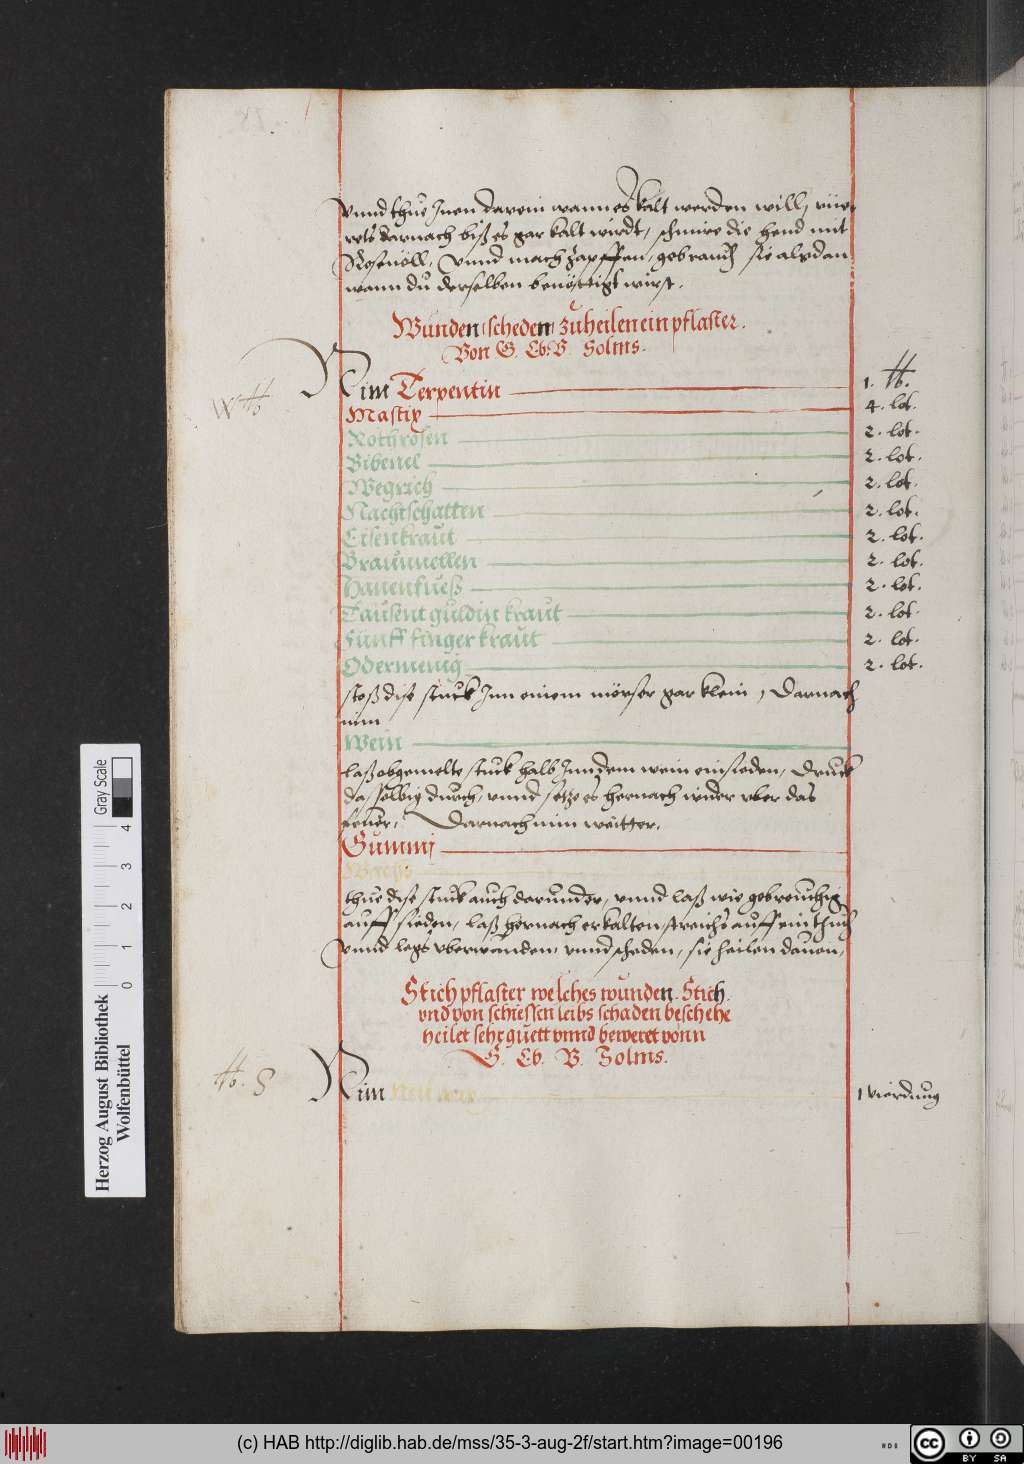 vnnd thue Jnen darein wann es kalt werden will, rüe
rets darnach biß es gar kalt wirdt, schmire die hend mit
Rosenöll, vnnd mach Zapffen, gebrauch sie alßdan
wann du derselben benöttigt wirst.
Wunden scheden zuheilen ein pflaster.
Von G. Eb. V. Solms.
Nim Terpentin 1. ℔.
Mastix 4. lot.
Roth rosen 2. lot.
Bibenel 2. lot.
Wegrich 2. lot.
Nachtschatten 2. lot.
Eisenkraut 2. lot.
Braunnellen 2. lot.
Hanenfueß 2. lot.
Tausent guldin kraut 2. lot.
Fünff finger kraut 2. lot.
Odermenig 2. lot.
stoß dise stuck Jnn einem mörser gar klein, Darnach
nim
Wein
laß obgemelte stuck halb Jnn dem wein einsieden, Druck
da selbig durch, vnnd setze es hernach wider vber das
feuer, Darnach nim weitter,
Gummj
Wachs
thue dise stuck auch darunder, vnnd laß wie gebreuchig
auff sieden, laß hernach erkalten, streichs auff ein thuch
vnnd legs vber wunden, vnnd scheden, sie heilen dauon,
Stich pflaster welches wunden. Stich.
vnd von schiessen leibs schaden beschehe
heilet sehr guett vnnd beweret vonn
G. Eb. V. Solms.
Nim 1 vierdung
Herzog August Bibliothek
Wolfenbüttel
Gray Scale
0 1 2 3 4
(c) HAB http://diglib.hab.de/mss/35-3-aug-2f/start.htm?image=00196
cc BY SA